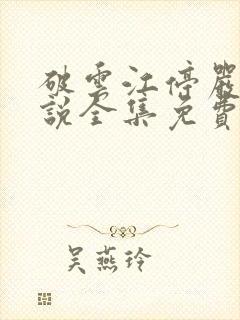 破雲江停嚴
說全集免費
吴燕玲